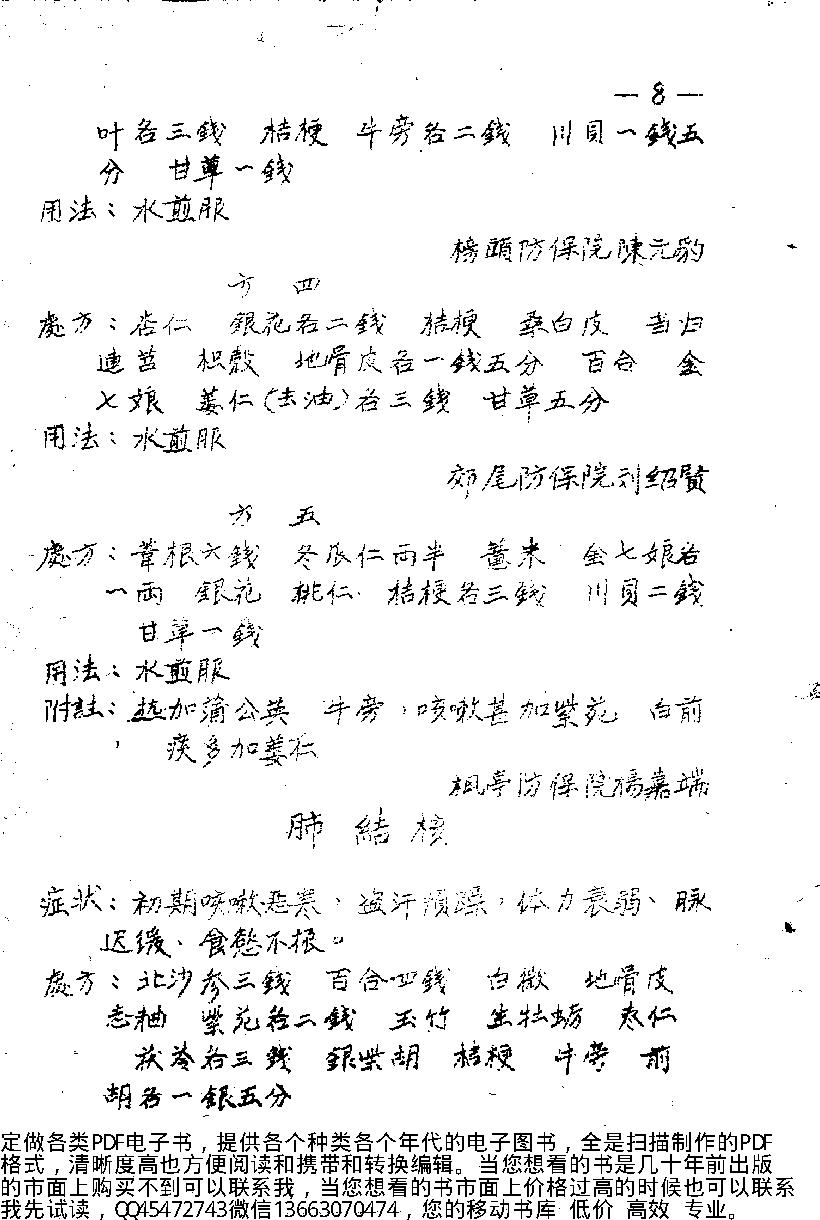 —8—
叶各三錢 桔梗 牛旁各二錢 川貝一錢五
分 甘草一錢
用法：水煎服
榜頭防保院陳元豹
方四
處方：杏仁 銀花各二錢 桔梗 桑白皮 当归
連苕 枳殼 地骨皮各一錢五分 百合 金
七娘 蒌仁(去油)各三錢 甘草五分
用法：水煎服
郊尾防保院刘紹賢
方五
處方：葦根六錢 冬瓜仁両半 薏米 金七娘各
一両 銀花 桃仁 桔梗各三錢 川貝二錢
甘草一錢
用法：水煎服
附註：热加蒲公英 牛旁，咳嗽甚加紫苑 白前
痰多加蒌仁
枫亭防保院楊嘉端
肺結核
症状：初期咳嗽恶寒，盗汗煩躁，体力衰弱、脉
迟缓、食慾不振。
處方：北沙参三錢 百合四錢 白薇 地骨皮
志柚 紫苑各二錢 玉竹 生牡蛎 枣仁
茯苓各三錢 銀柴胡 桔梗 牛旁 前
胡各一銀五分
定做各类PDF电子书，提供各个种类各个年代的电子图书，全是扫描制作的PDF
格式，清晰度高也方便阅读和携带和转换编辑。当您想看的书是几十年前出版
的市面上购买不到可以联系我，当您想看的书市面上价格过高的时候也可以联系
我先试读，QQ45472743微信13663070474，您的移动书库 低价 高效 专业。